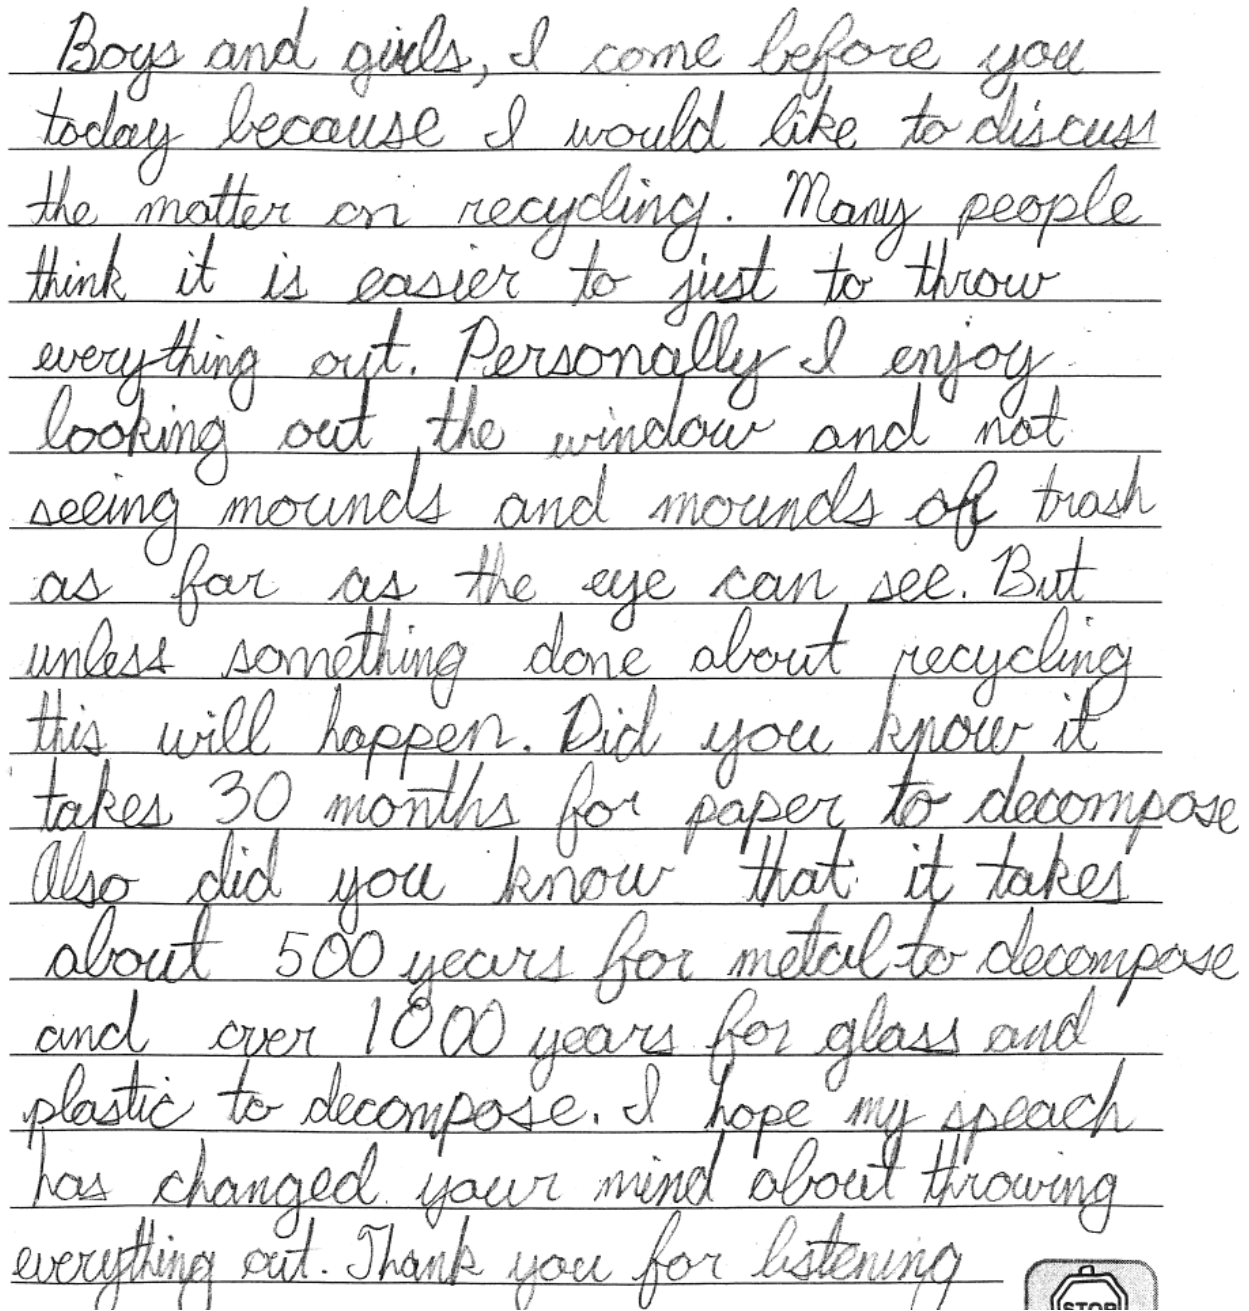 Boys and girls, I come before you
today because I would like to discuss
the matter on recycling. Many people
think it is easier to just to throw
everything out. Personally I enjoy
looking out the window and not
seeing mounds and mounds of trash
as far as the eye can see. But
unless something done about recycling
this will happen. Did you know it
takes 30 months for paper to decompose
Also did you know that it takes
about 500 years for metal to decompose
and over 1000 years for glass and
plastic to decompose. I hope my speach
has changed your mind about throwing
everything out. Thank you for listening
STOP